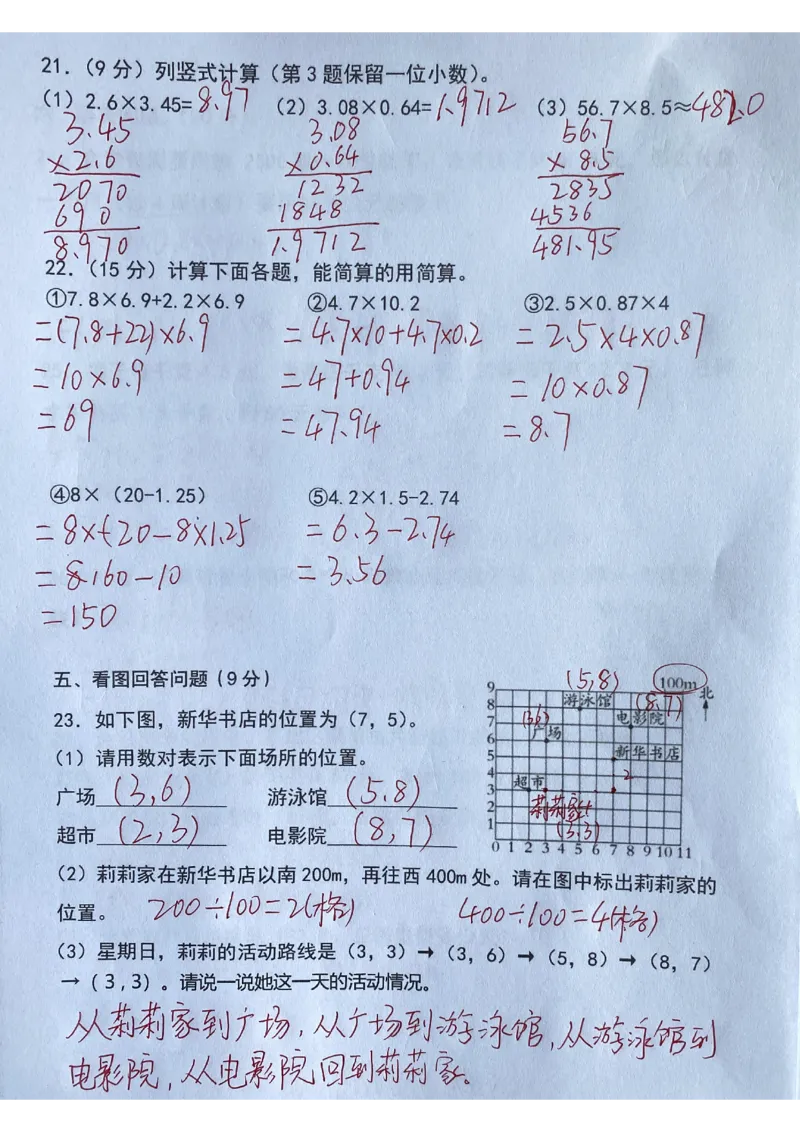 21.（9 分）列竖式计算（第 3 题保留一位小数）。
（1）2.6×3.45=8.97 （2）3.08×0.64=1.9712 （3）56.7×8.5≈482.0
3.45 3.08 56.7
×2.6 ×0.64 × 8.5
2070 1232 2835
690 1848 4536
8.970 1.9712 481.95
22.（15 分）计算下面各题，能简算的用简算。
①7.8×6.9+2.2×6.9 ②4.7×10.2 ③2.5×0.87×4
=(7.8+22)×6.9 =4.7×10+4.7×0.2 =2.5×4×0.87
=10×6.9 =47+0.94 =10×0.87
=69 =47.94 =8.7
④8×（20-1.25） ⑤4.2×1.5-2.74
=8×20-8×1.25 =6.3-2.74
=160-10 =3.56
=150
五、看图回答问题（9 分）
23. 如下图，新华书店的位置为（7，5）。
（1）请用数对表示下面场所的位置。
广场(3,6) 游泳馆(5.8)
超市(2,3) 电影院(8,7)
(5,8) 100m 北
9
8 游泳馆 (8,7)
7 (3,6) 电影院
6 广场
5 新华书店
4 2
3 超市
2 莉莉家 4
1 (3.3)
0 1 2 3 4 5 6 7 8 9 10 11
（2）莉莉家在新华书店以南 200m，再往西 400m 处。请在图中标出莉莉家的
位置。 200÷100=2(格) 400÷100=4(格)
（3）星期日，莉莉的活动路线是（3，3）→（3，6）→（5，8）→（8，7）
→（3,3）。请说一说她这一天的活动情况。
从莉莉家到广场，从广场到游泳馆，从游泳馆到
电影院，从电影院回到莉莉家。